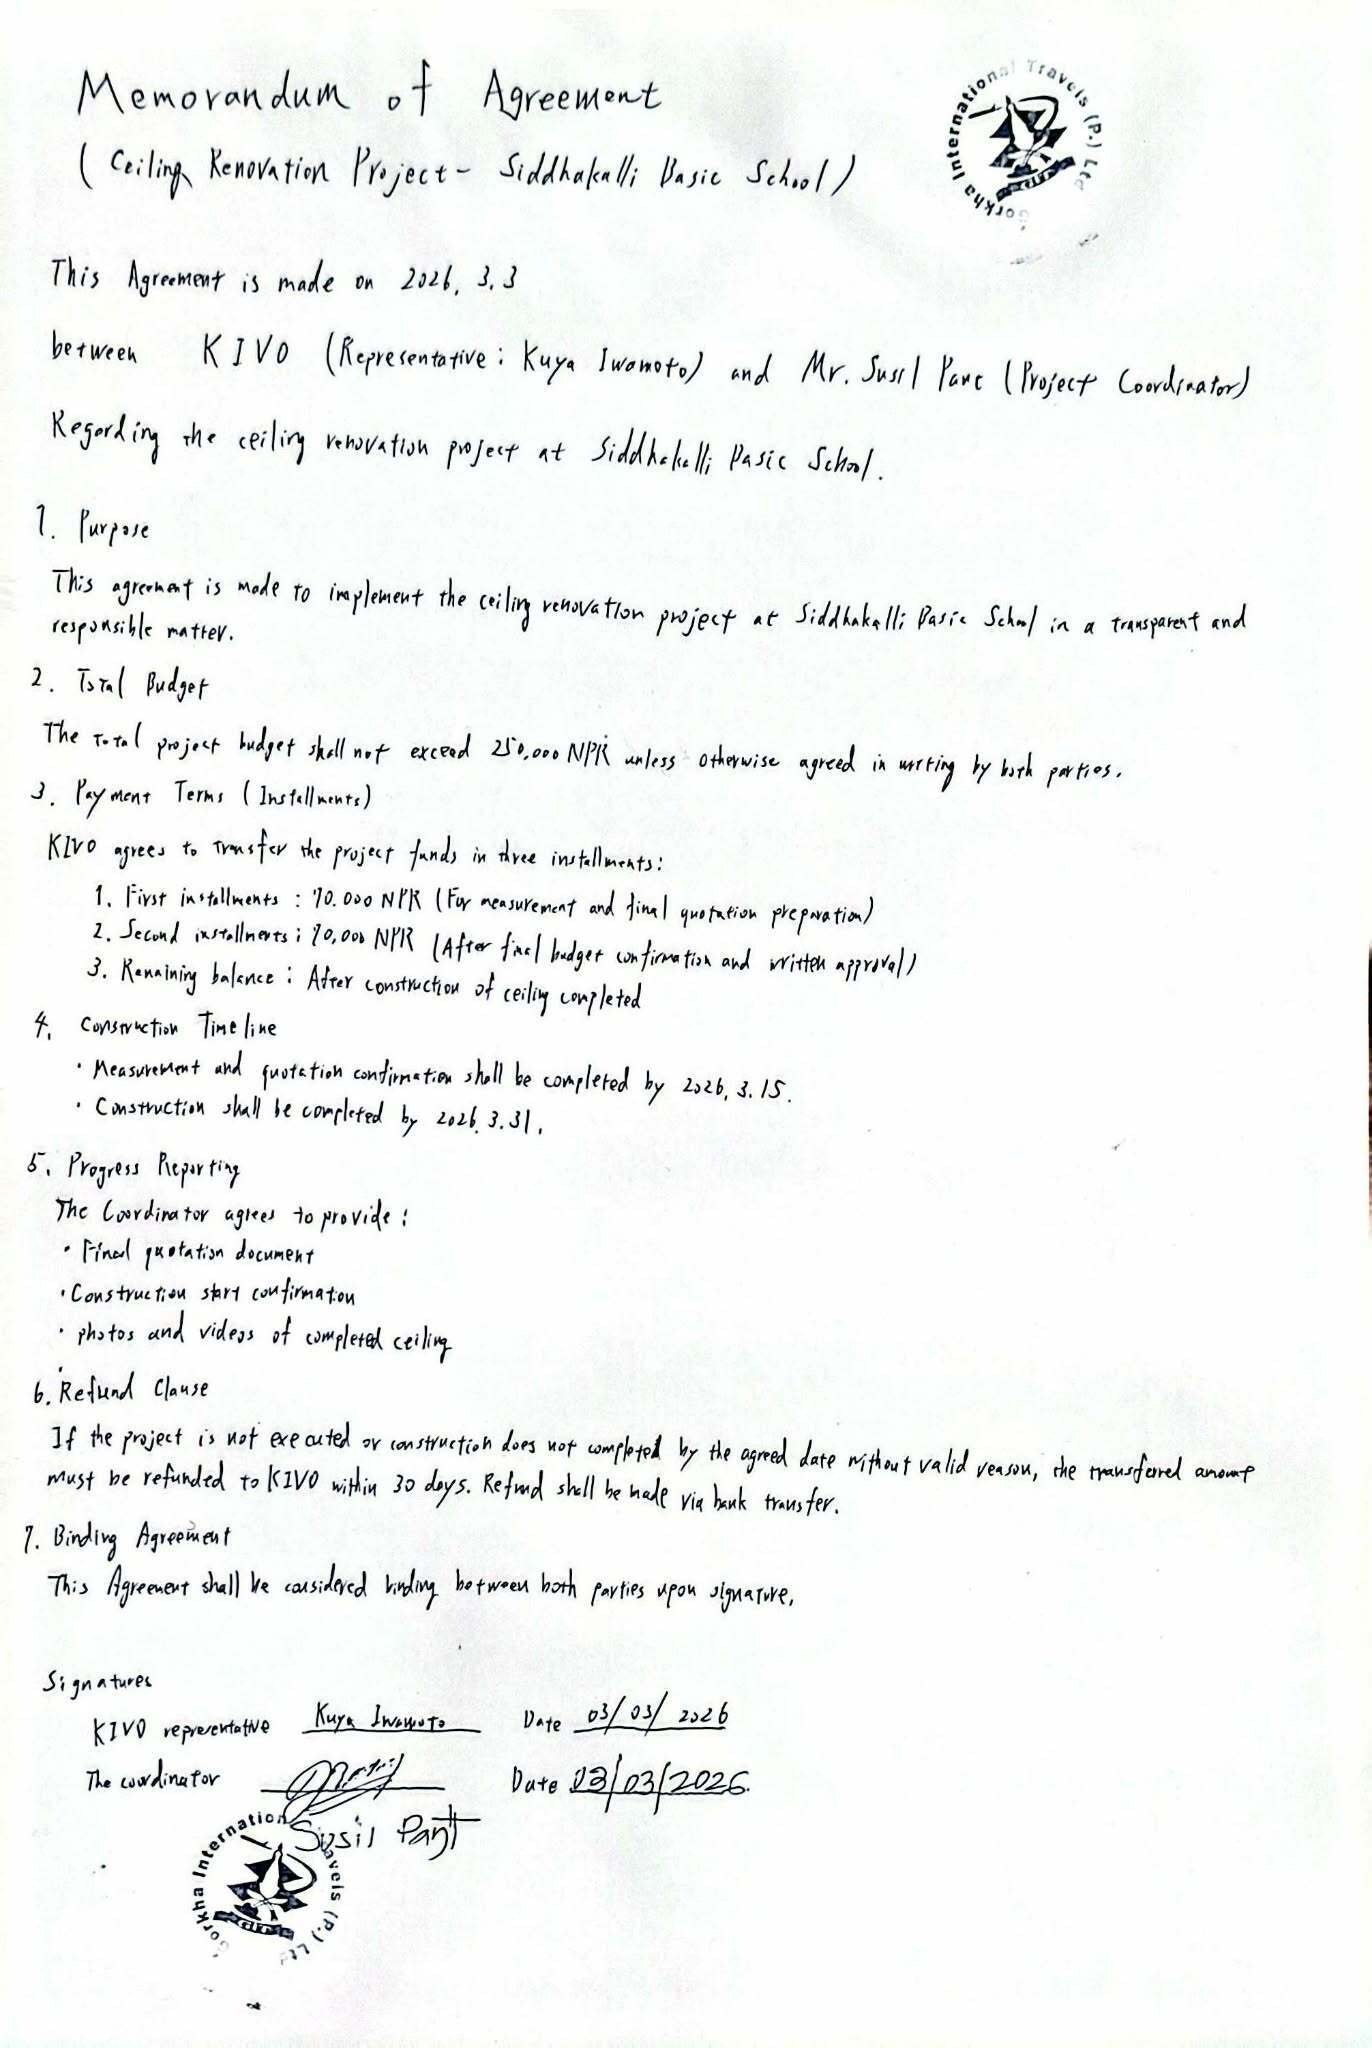 Memorandum of Agreement
(Ceiling Renovation Project- Siddhakalli Basic School)
Gorkha International Travels (P.) Ltd
This Agreement is made on 2026. 3.3
between KIVO (Representative: Kuya Iwamoto) and Mr. Susil Pant (Project Coordinator)
Regarding the ceiling renovation project at Siddhakalli Basic School.
1. Purpose
This agreement is made to implement the ceiling renovation project at Siddhakalli Basic School in a transparent and
responsible matter.
2. Total Budget
The total project budget shall not exceed 250,000 NPR unless otherwise agreed in writing by both parties.
3. Payment Terms (Installments)
KIVO agrees to transfer the project funds in three installments:
1. First installments : 70.000 NPR (For measurement and final quotation preparation)
2. Second installments : 70,000 NPR (After final budget confirmation and written approval)
3. Remaining balance : After construction of ceiling completed
4. Construction Timeline
· Measurement and quotation confirmation shall be completed by 2026. 3.15.
· Construction shall be completed by 2026. 3.31.
5. Progress Reporting
The Coordinator agrees to provide :
· Final quotation document
· Construction start confirmation
· photos and videos of completed ceiling
6. Refund Clause
If the project is not executed or construction does not completed by the agreed date without valid reason, the transferred amount
must be refunded to KIVO within 30 days. Refund shall be made via bank transfer.
7. Binding Agreement
This Agreement shall be considered binding between both parties upon signature.
Signatures
KIVO representative Kuya Iwamoto Date 03/03/2026
The coordinator Date 03/03/2026
Susil Pant
Gorkha International Travels (P.) Ltd